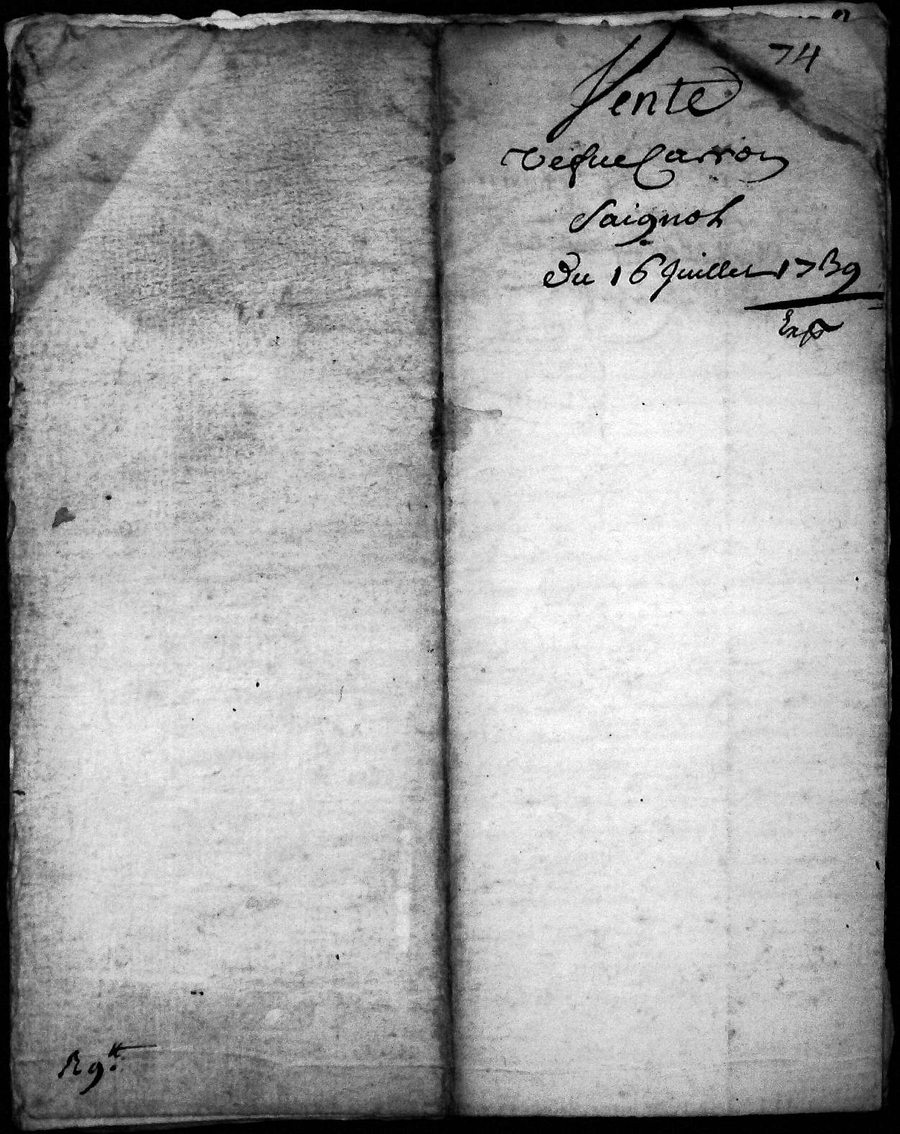 74
Vente
vefue Carron
Saignol
Du 16 Juillet 1739
Exp